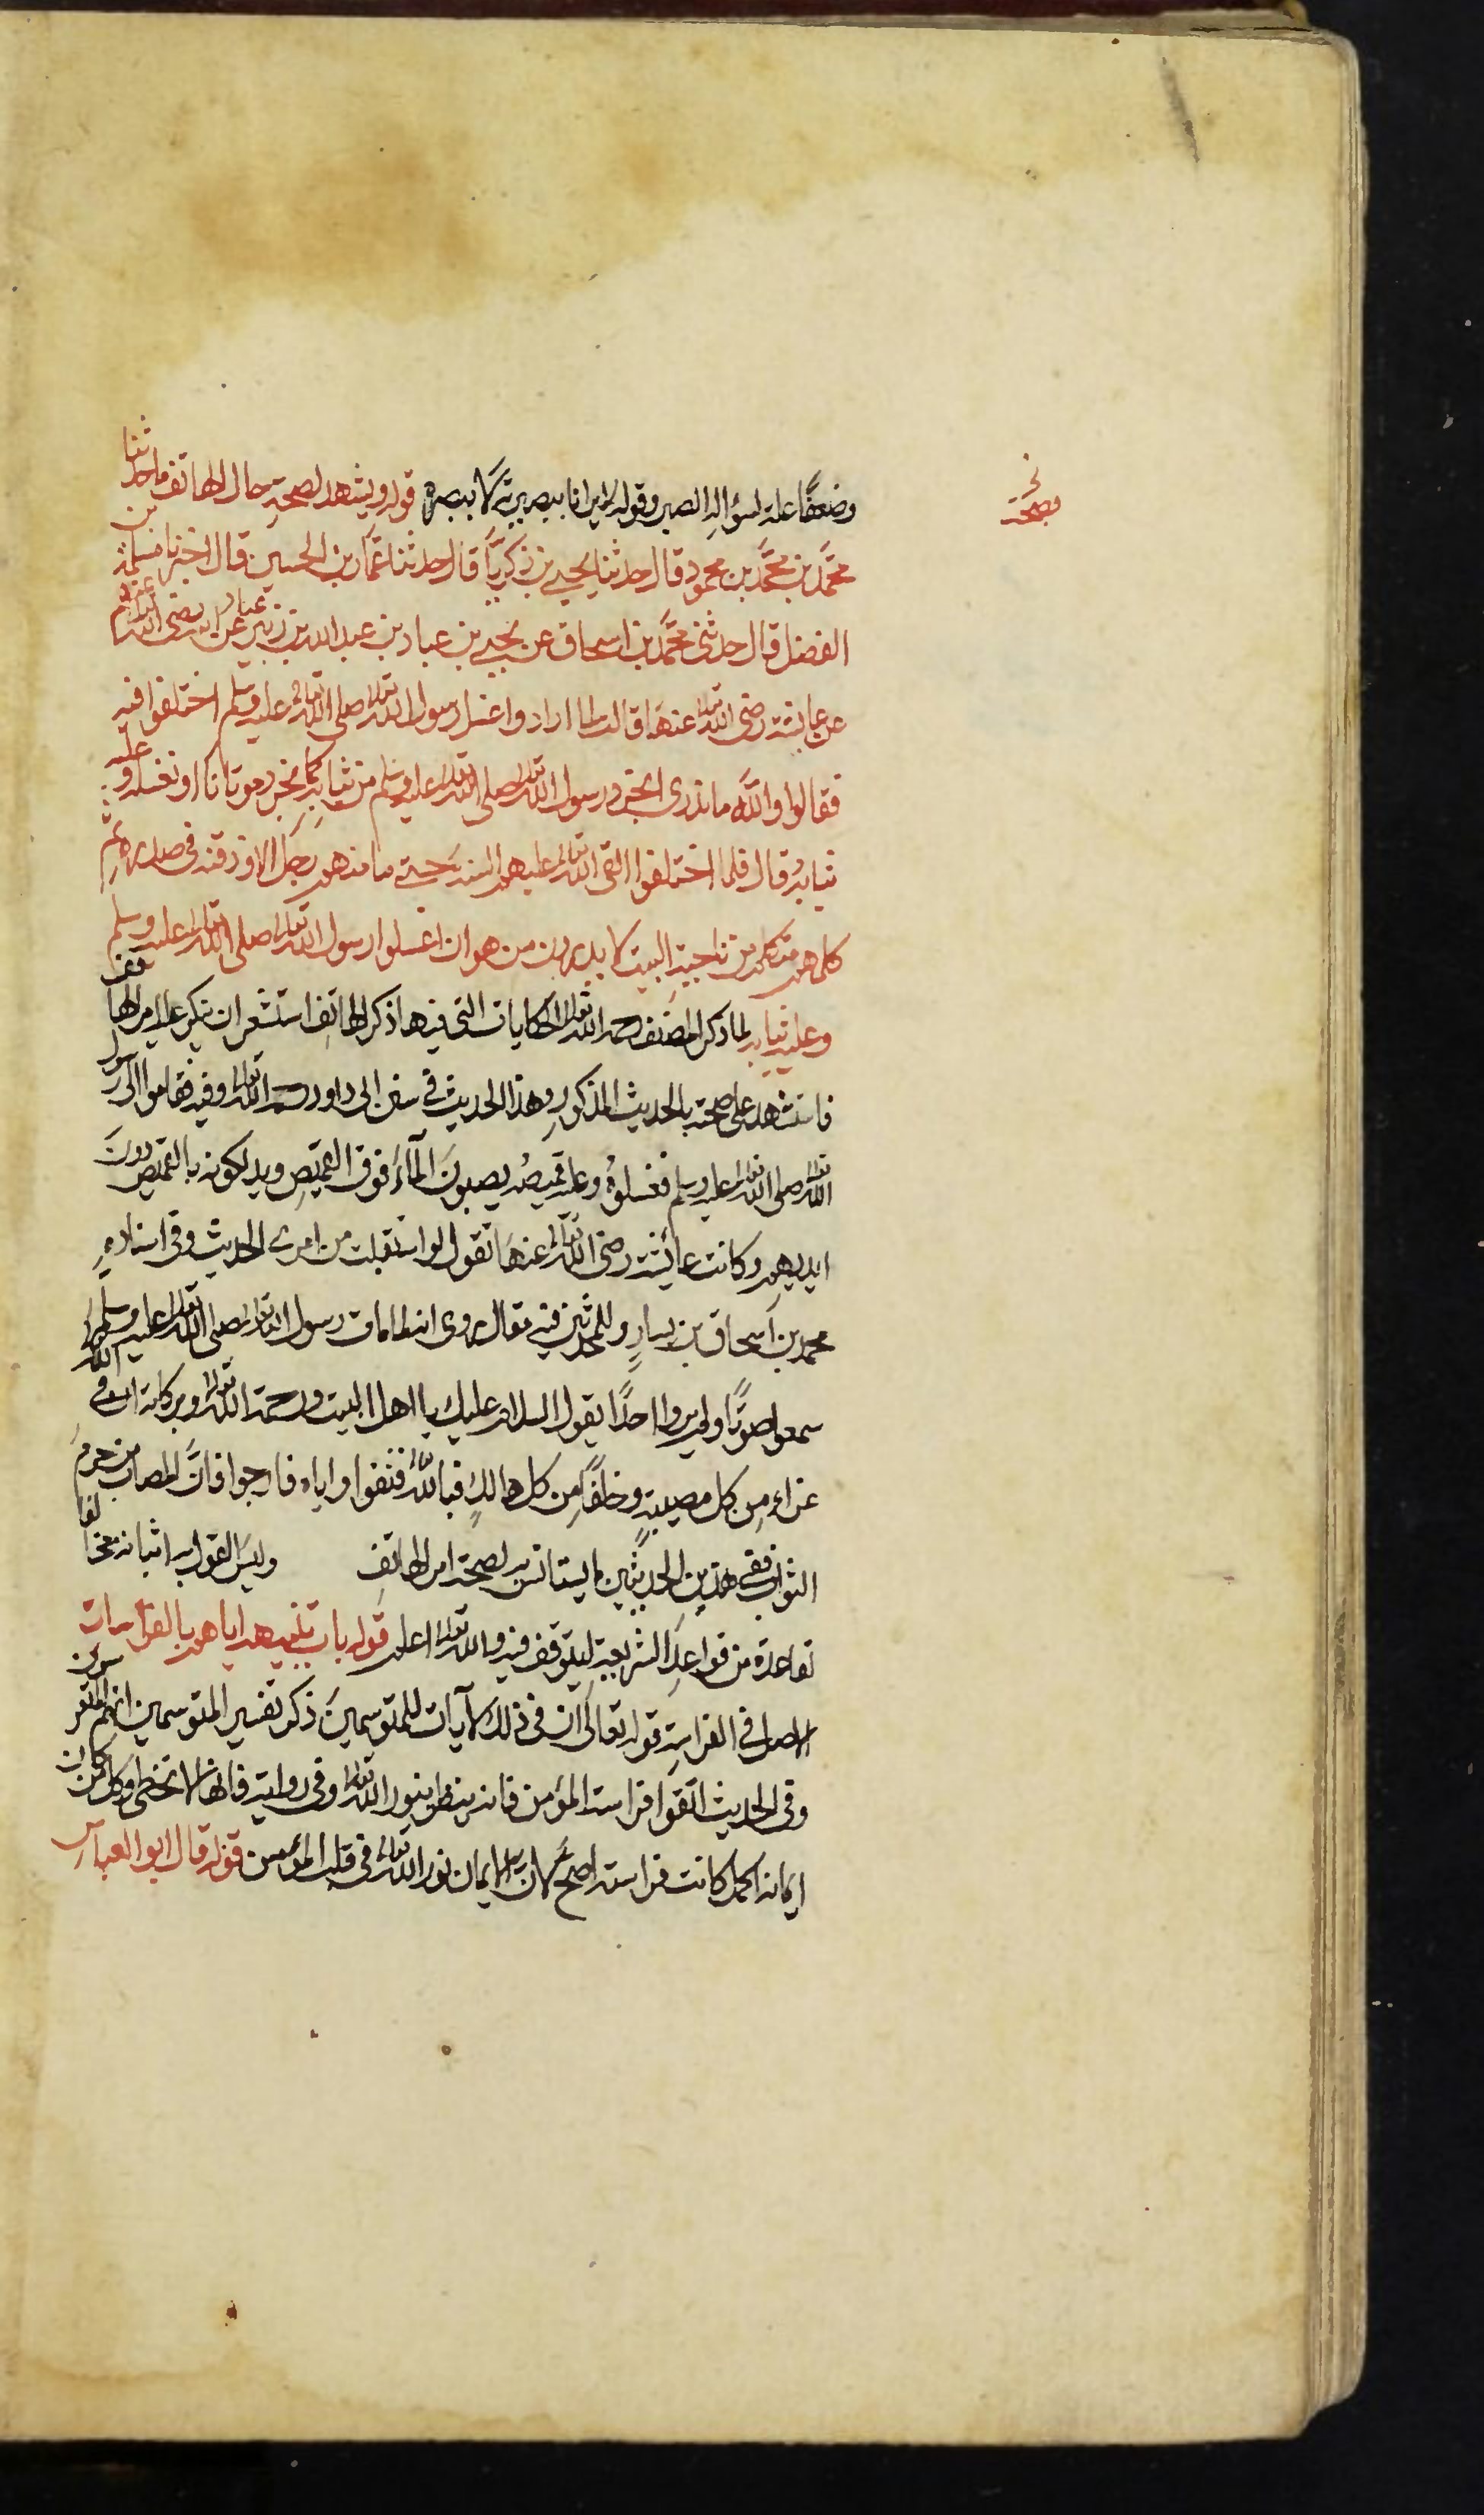 وضعفًا علة لسؤاله الصبر وقوله لا يرانا ببصيرته لا ببصره قوله ويشهد لصحة حال الهاتف ما حدثنا
محمد بن محمد بن محمود قال حدثنا يحيى بن زكريا قال حدثنا عمار بن الحسين قال اخبرنا مسلمة بن
الفضل قال حدثني محمد بن اسحاق عن يحيى بن عباد بن عبد الله بن زبير عن ابيه عباد رضي الله
عن عايشة رضي الله تعالى عنها قالت لما ارادوا غسل رسول الله تعالى صلى الله تعالى عليه وسلم اختلفوا فيه
فقالوا والله ما ندري انجرد رسول الله تعالى صلى الله تعالى عليه وسلم من ثيابه كما نجرد موتانا او نغسله وعليه
ثيابه قال فلما اختلفوا القى الله تعالى عليهم السنة حتى ما منهم رجل الا وذقنه في صدره ثم
كلمهم متكلم من ناحية البيت لا يدرون من هو ان اغسلوا رسول الله تعالى صلى الله تعالى عليه وسلم
وعليه ثيابه لما ذكر المصنف رحمه الله تعالى الحكايات التي فيها ذكر الهاتف استشعر ان ينكر عليه امر الهاتف
فاستشهد على صحته بالحديث المذكور وهذا الحديث في سنن ابي داود رحمه الله تعالى وفيه فقاموا الى رسول
الله تعالى صلى الله تعالى عليه وسلم فغسلوه وعليه قميصه يصبون الماء فوق القميص ويدلكونه بالقميص دون
ايديهم وكانت عائشة رضي الله تعالى عنها تقول لو استقبلت من امري الحديث وفي اسناده
محمد بن اسحاق بن يسار وللمحدثين فيه مقال روى انه لما مات رسول الله تعالى صلى الله تعالى عليه وسلم
سمعوا صوتًا ولم يروا احدًا يقول السلام عليك يا اهل البيت ورحمة الله تعالى وبركاته ان في الله
عزاء من كل مصيبة وخلفًا من كل هالك فبالله فثقوا واياه فارجوا فان المصاب من حرم
الثواب ففي هذين الحديثين ما يستانس به لصحة امر الهاتف وليس القول به اثباته مخالفا
لقاعدة من قواعد الشريعة ليتوقف فيه والله تعالى اعلم قوله باب تنبيههم اياهم بالفراسات
الاصل في الفراسة قوله تعالى ان في ذلك لآيات للمتوسمين ذكر تفسير المتوسمين انهم المتفرسون
وفي الحديث اتقوا فراسة المؤمن فانه ينظر بنور الله تعالى وفي رواية فانها لا تخطى وكل من كان
ايمانه اكمل كانت فراسته اصح لان الايمان نور الله تعالى في قلب المؤمن قوله قال ابو العباس
وصحة